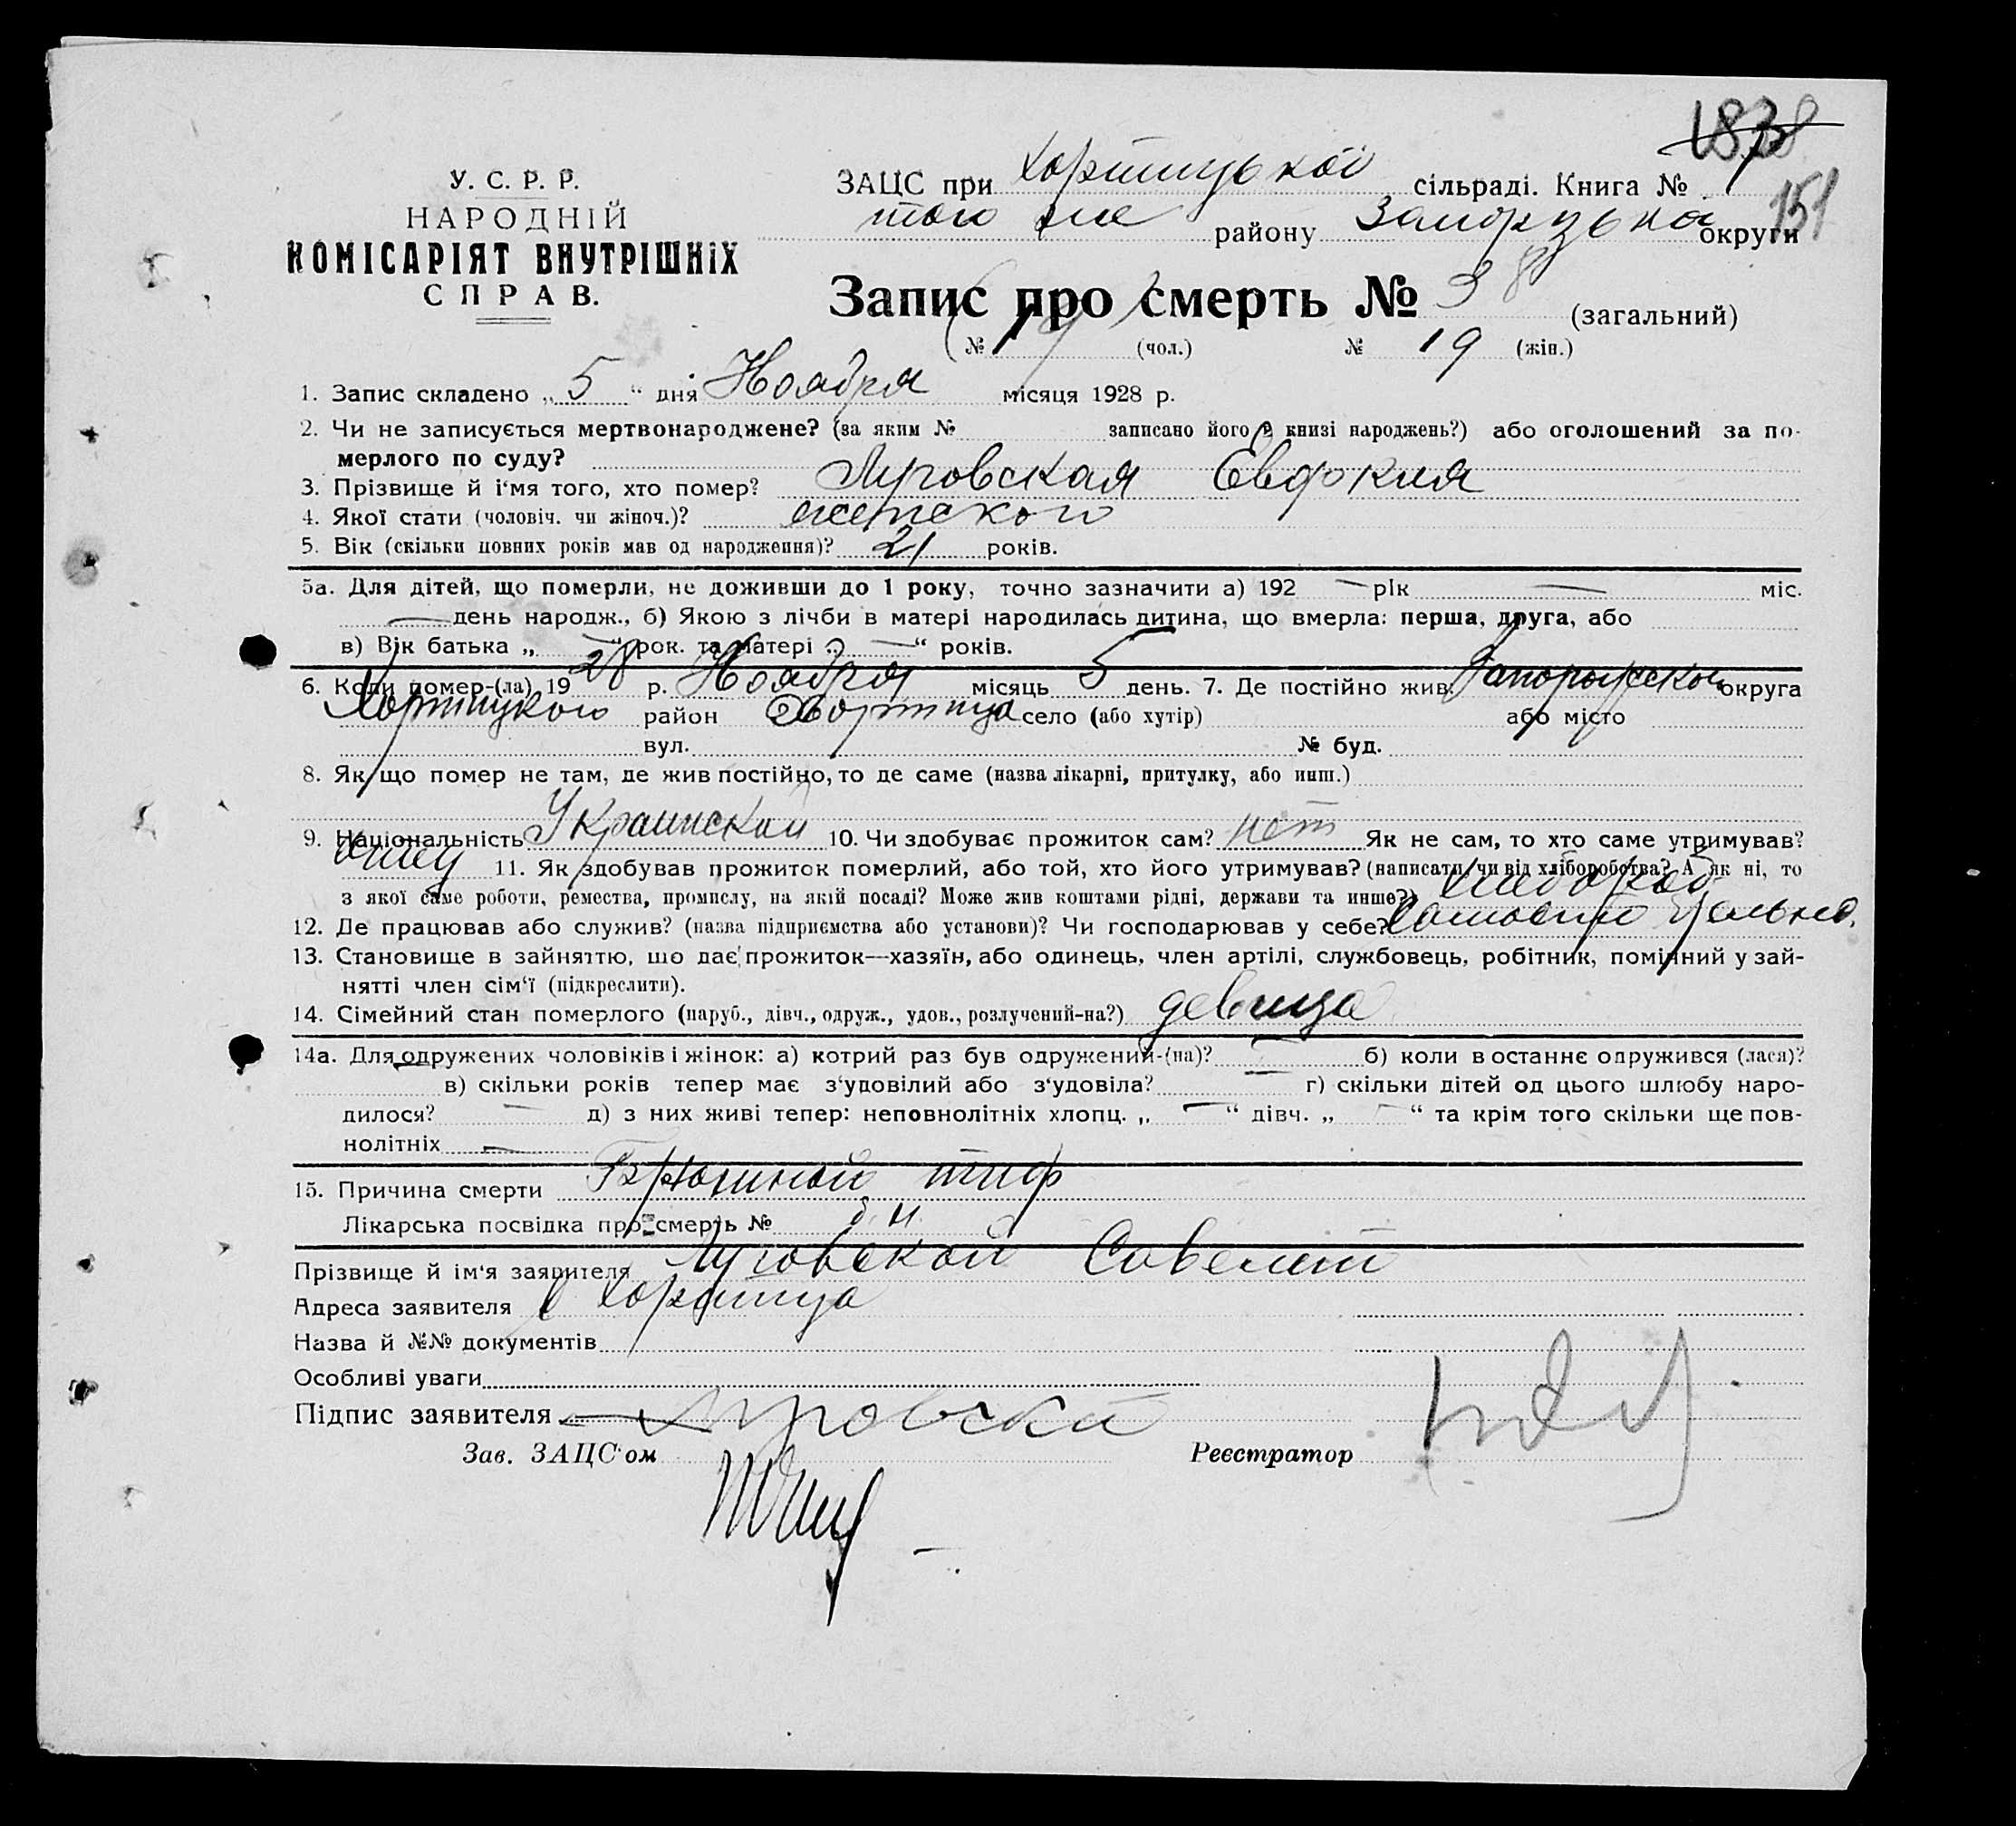 1838
151
У. С. Р. Р.
НАРОДНІЙ
КОМІСАРІЯТ ВНУТРІШНІХ
СПРАВ.
ЗАЦС при Хортицькой сільраді. Книга №
того же району округи
Запис про смерть № 38 (загальний)
(№ (чол.) № 19 (жін.)
1. Запис складено „5“ дня Ноября місяця 1928 р.
2. Чи не записується мертвонароджене? (за яким № записано його в книзі народжень?) або оголошений за по-
мерлого по суду?
3. Прізвище й і'мя того, хто помер? Луговская
4. Якої стати (чоловіч. чи жіноч.)? женского
5. Вік (скільки повних років мав од народження)? 21 років.
5а. Для дітей, що померли, не доживши до 1 року, точно зазначити а) 192 — рік — міс.
— день народж., б) Якою з лічби в матері народилась дитина, що вмерла: перша, друга, або
в) Вік батька „—“ рок. та матері „—“ років.
6. Коли помер-(ла) 1928 р. Ноября місяць 5 день. 7. Де постійно жив. Запорожской округа
Хортицкого район Хортица село (або хутір) або місто
вул. № буд.
8. Як що помер не там, де жив постійно, то де саме (назва лікарні, притулку, або инш.)
9. Національність Украинской 10. Чи здобуває прожиток сам? нет Як не сам, то хто саме утримував?
отец 11. Як здобував прожиток померлий, або той, хто його утримував? (написати, чи від хліборобства? А як ні, то
з якої саме роботи, ремества, промислу, на якій посаді? Може жив коштами рідні, держави та инше?) хлебороб
12. Де працював або служив? (назва підприємства або установи)? Чи господарював у себе?
13. Становище в зайняттю, що дає прожиток—хазяїн, або одинець, член артілі, службовець, робітник, помічний у зай-
нятті член сім'ї (підкреслити).
14. Сімейний стан померлого (паруб., дівч., одруж., удов., розлучений-на?) девица
14а. Для одружених чоловіків і жінок: а) котрий раз був одружений-(на)? — б) коли в останнє одружився (лася)?
— в) скільки років тепер має з'удовілий або з'удовіла? — г) скільки дітей од цього шлюбу наро-
дилося? — д) з них живі тепер: неповнолітніх хлопц. „—“ дівч. „—“ та крім того скільки ще пов-
нолітніх —
15. Причина смерти Брюшной тиф
Лікарська посвідка про смерть № б. н.
Прізвище й ім'я заявителя Луговской Савелий
Адреса заявителя с Хортица
Назва й №№ документів
Особливі уваги
Підпис заявителя
Зав. ЗАЦС'ом Реєстратор